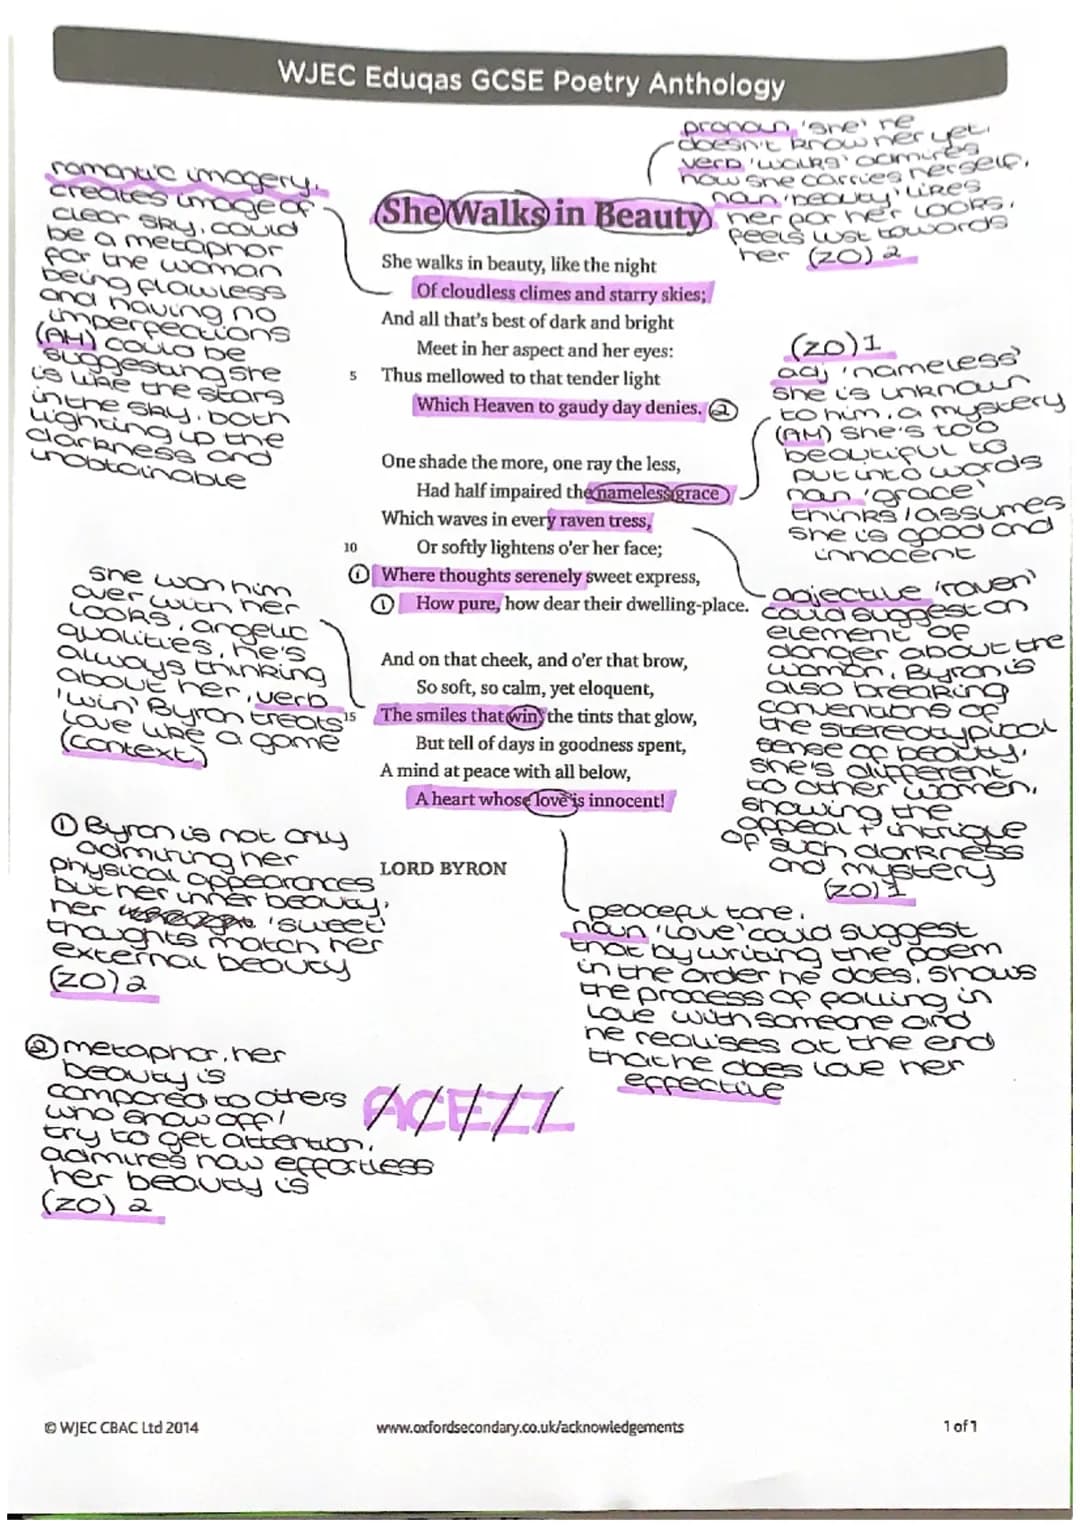 WJEC Eduqas GCSE Poetry Anthology
pronoun 'she' he
doesn't know her yet,
verb 'walks' admires
how she carries herself,
noun 'beauty' likes
her for her looks.
feels lust towards
her (ZO) 2
romantic imagery.
creates image of
clear sky, could
be a metaphor
for the woman
being flawless
and having no
imperfections
(AM) could be
suggesting she
is like the stars
in the sky. both
lighting up the
darkness and
unobtainable
She Walks in Beauty
She walks in beauty, like the night
Of cloudless climes and starry skies;
And all that's best of dark and bright
Meet in her aspect and her eyes:
5 Thus mellowed to that tender light
Which Heaven to gaudy day denies. 2
One shade the more, one ray the less,
Had half impaired the nameless grace
Which waves in every raven tress,
10 Or softly lightens o'er her face;
1 Where thoughts serenely sweet express,
1 How pure, how dear their dwelling-place.
And on that cheek, and o'er that brow,
So soft, so calm, yet eloquent,
15 The smiles that win, the tints that glow,
But tell of days in goodness spent,
A mind at peace with all below,
A heart whose love is innocent!
LORD BYRON
(ZO) 1
adj 'nameless'
she is unknown
to him, a mystery
(AM) she's too
beautiful to
put into words
noun 'grace'
thinks/assumes
she is good and
innocent
adjective 'raven'
could suggest an
element of
danger about the
woman. Byron is
also breaking
conventions of
the stereotypical
sense of beauty,
she's different
to other women,
showing the
appeal + intrigue
of such darkness
and mystery
(ZO) 1
she won him
over with her
looks, angelic
qualities, he's
always thinking
about her, verb
'win' Byron treats
love like a game
(context)
1 Byron is not only
admiring her
physical appearances
but her inner beauty,
her 'sweet'
thoughts match her
external beauty
(ZO) 2
peaceful tone.
noun 'love' could suggest
that by writing the poem
in the order he does, shows
the process of falling in
love with someone and
he realises at the end
that he does love her
effective
2 metaphor, her
beauty is
compared to others
who show off /
try to get attention,
admires how effortless
her beauty is
(ZO) 2
ACEZZ
© WJEC CBAC Ltd 2014
www.oxfordsecondary.co.uk/acknowledgements
1 of 1